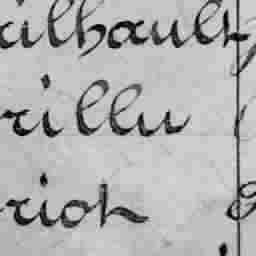 ailhault
rillu
rioh